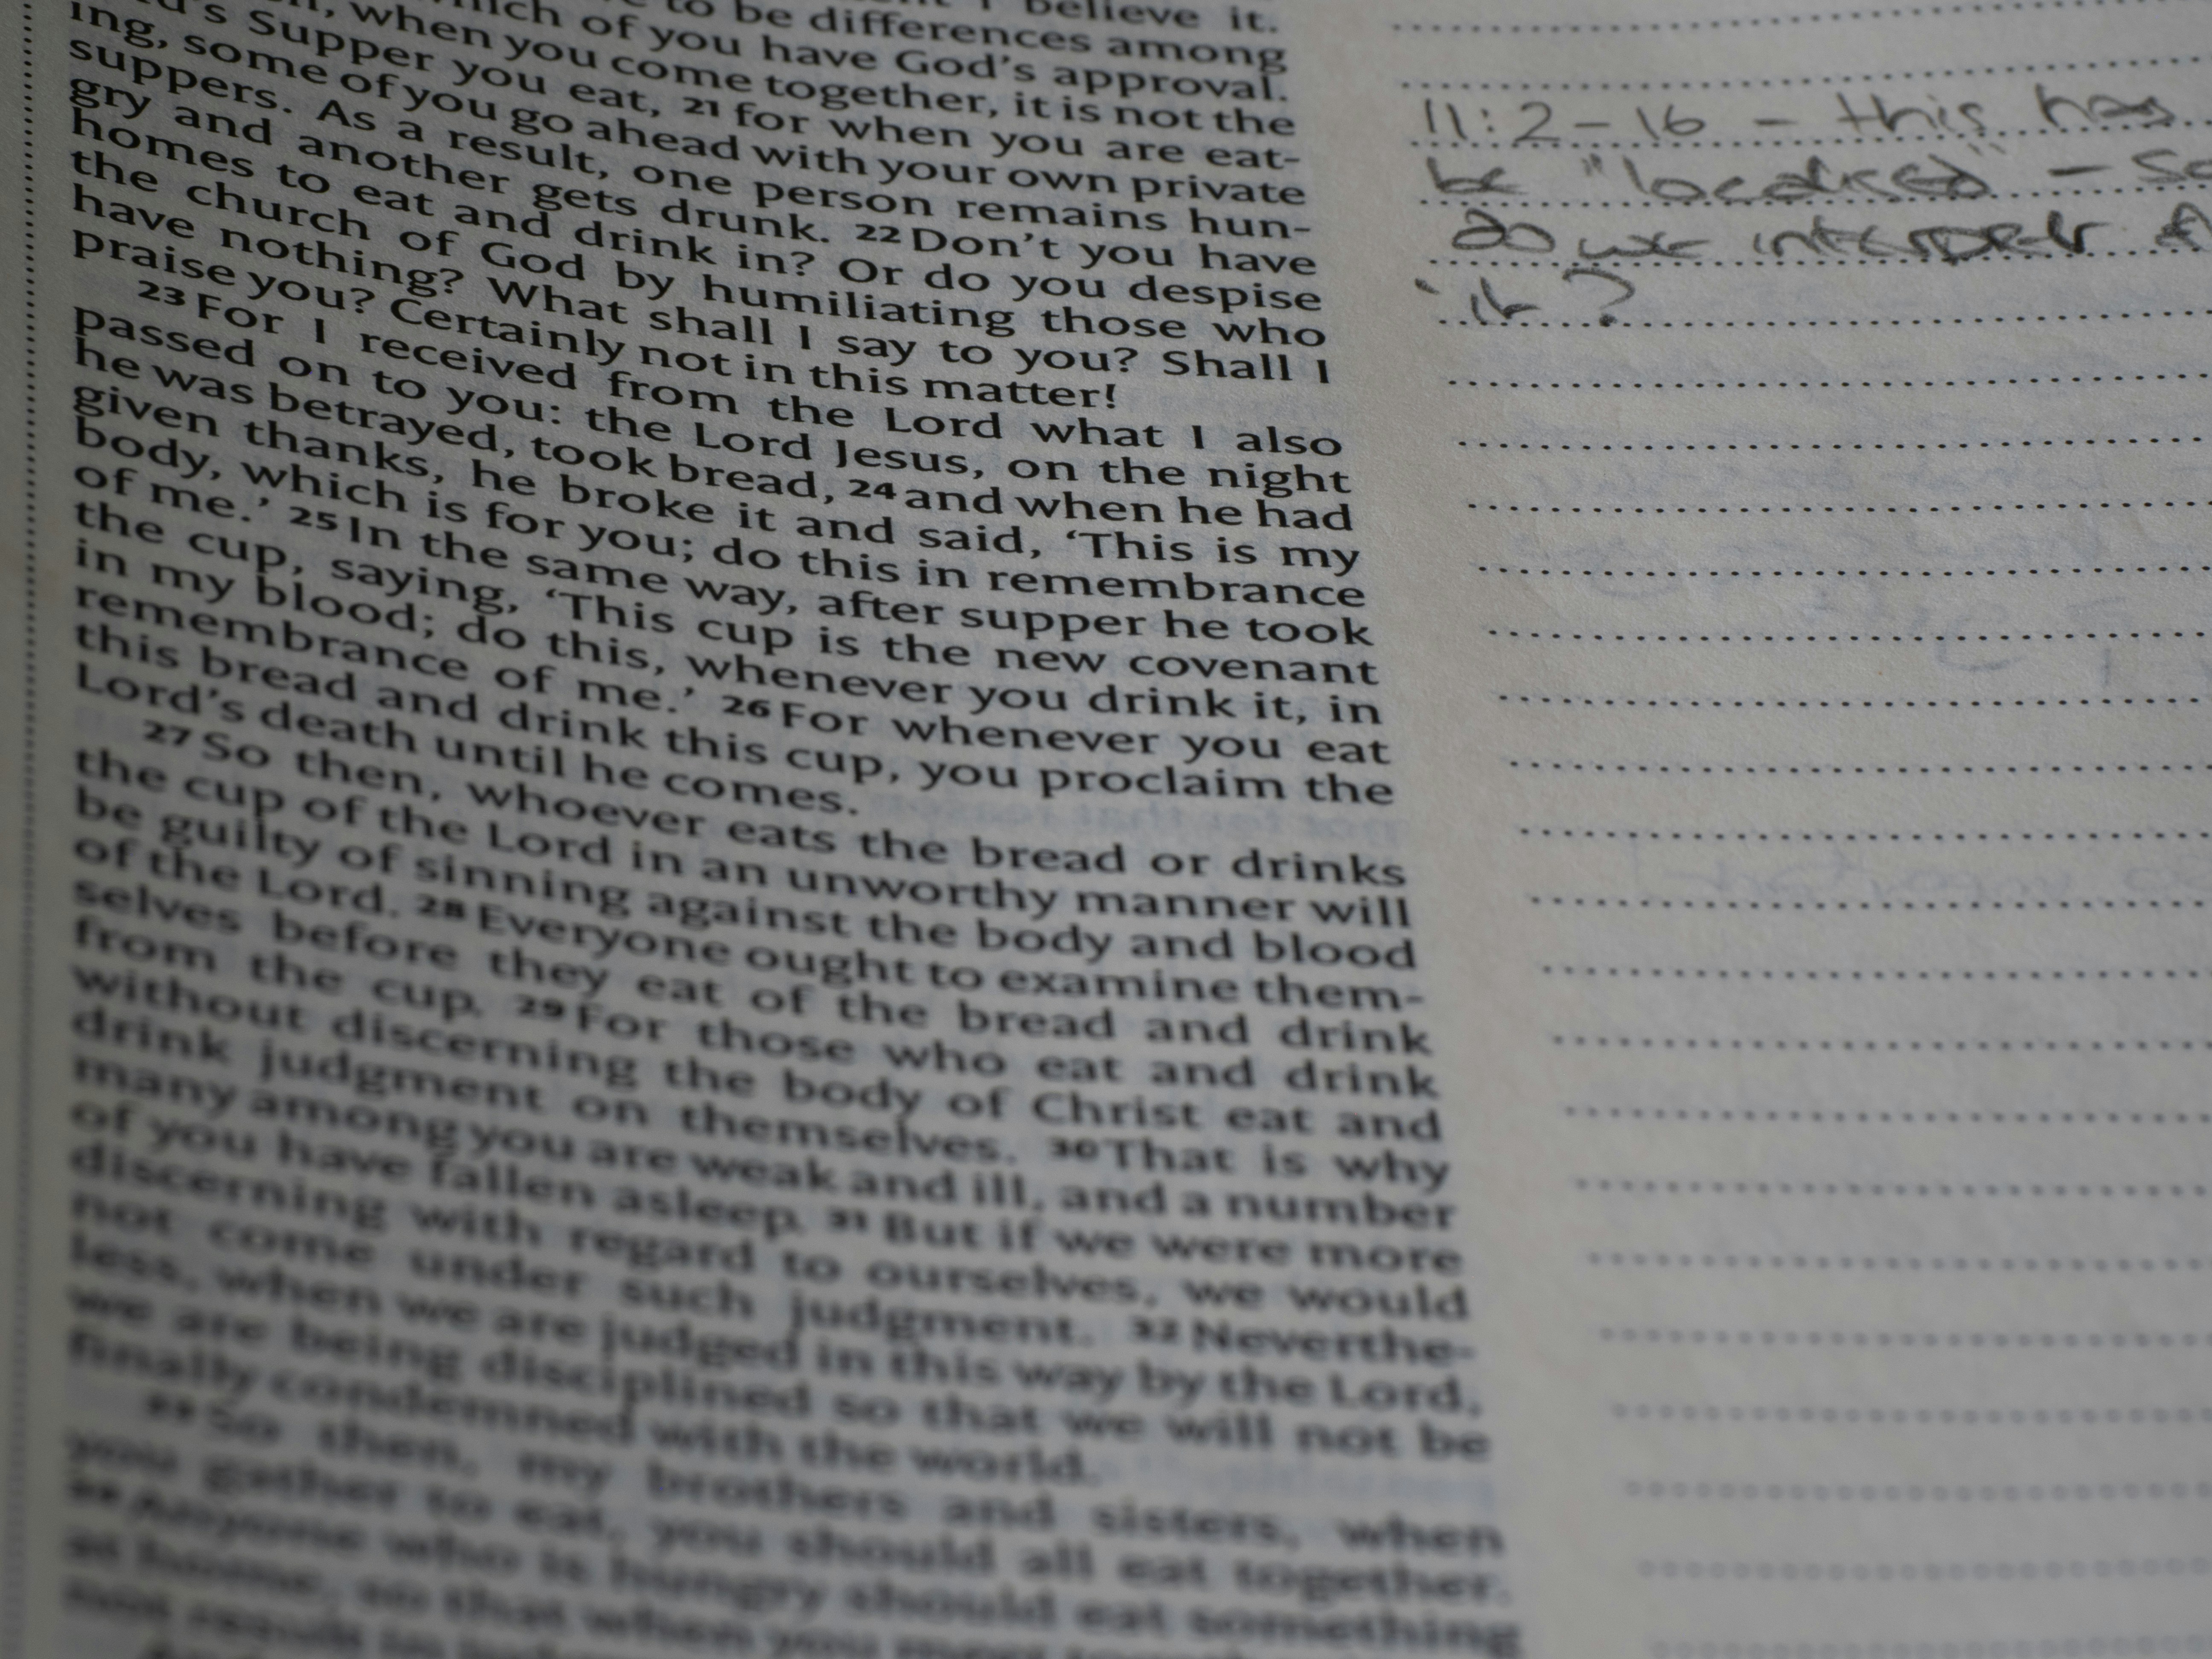 believe it.
to be differences among
which of you have God's approval.
when you come together, it is not the
's Supper you eat, 21 for when you are eat-
ing, some of you go ahead with your own private
suppers. As a result, one person remains hun-
gry and another gets drunk. 22 Don't you have
homes to eat and drink in? Or do you despise
the church of God by humiliating those who
have nothing? What shall I say to you? Shall I
praise you? Certainly not in this matter!
23 For I received from the Lord what I also
passed on to you: the Lord Jesus, on the night
he was betrayed, took bread, 24 and when he had
given thanks, he broke it and said, ‘This is my
body, which is for you; do this in remembrance
of me.’ 25 In the same way, after supper he took
the cup, saying, ‘This cup is the new covenant
in my blood; do this, whenever you drink it, in
remembrance of me.’ 26 For whenever you eat
this bread and drink this cup, you proclaim the
Lord's death until he comes.
27 So then, whoever eats the bread or drinks
the cup of the Lord in an unworthy manner will
be guilty of sinning against the body and blood
of the Lord. 28 Everyone ought to examine them-
selves before they eat of the bread and drink
from the cup. 29 For those who eat and drink
without discerning the body of Christ eat and
drink judgment on themselves. 30 That is why
many among you are weak and ill, and a number
of you have fallen asleep. 31 But if we were more
discerning with regard to ourselves, we would
not come under such judgment. 32 Neverthe-
less, when we are judged in this way by the Lord,
we are being disciplined so that we will not be
finally condemned with the world.
33 So then, my brothers and sisters, when
you gather to eat, you should all eat together.
34 Anyone who is hungry should eat something
at home, so that when you meet
not result in
11:2-16 - this has
be "localised" -
do we interpret
it?